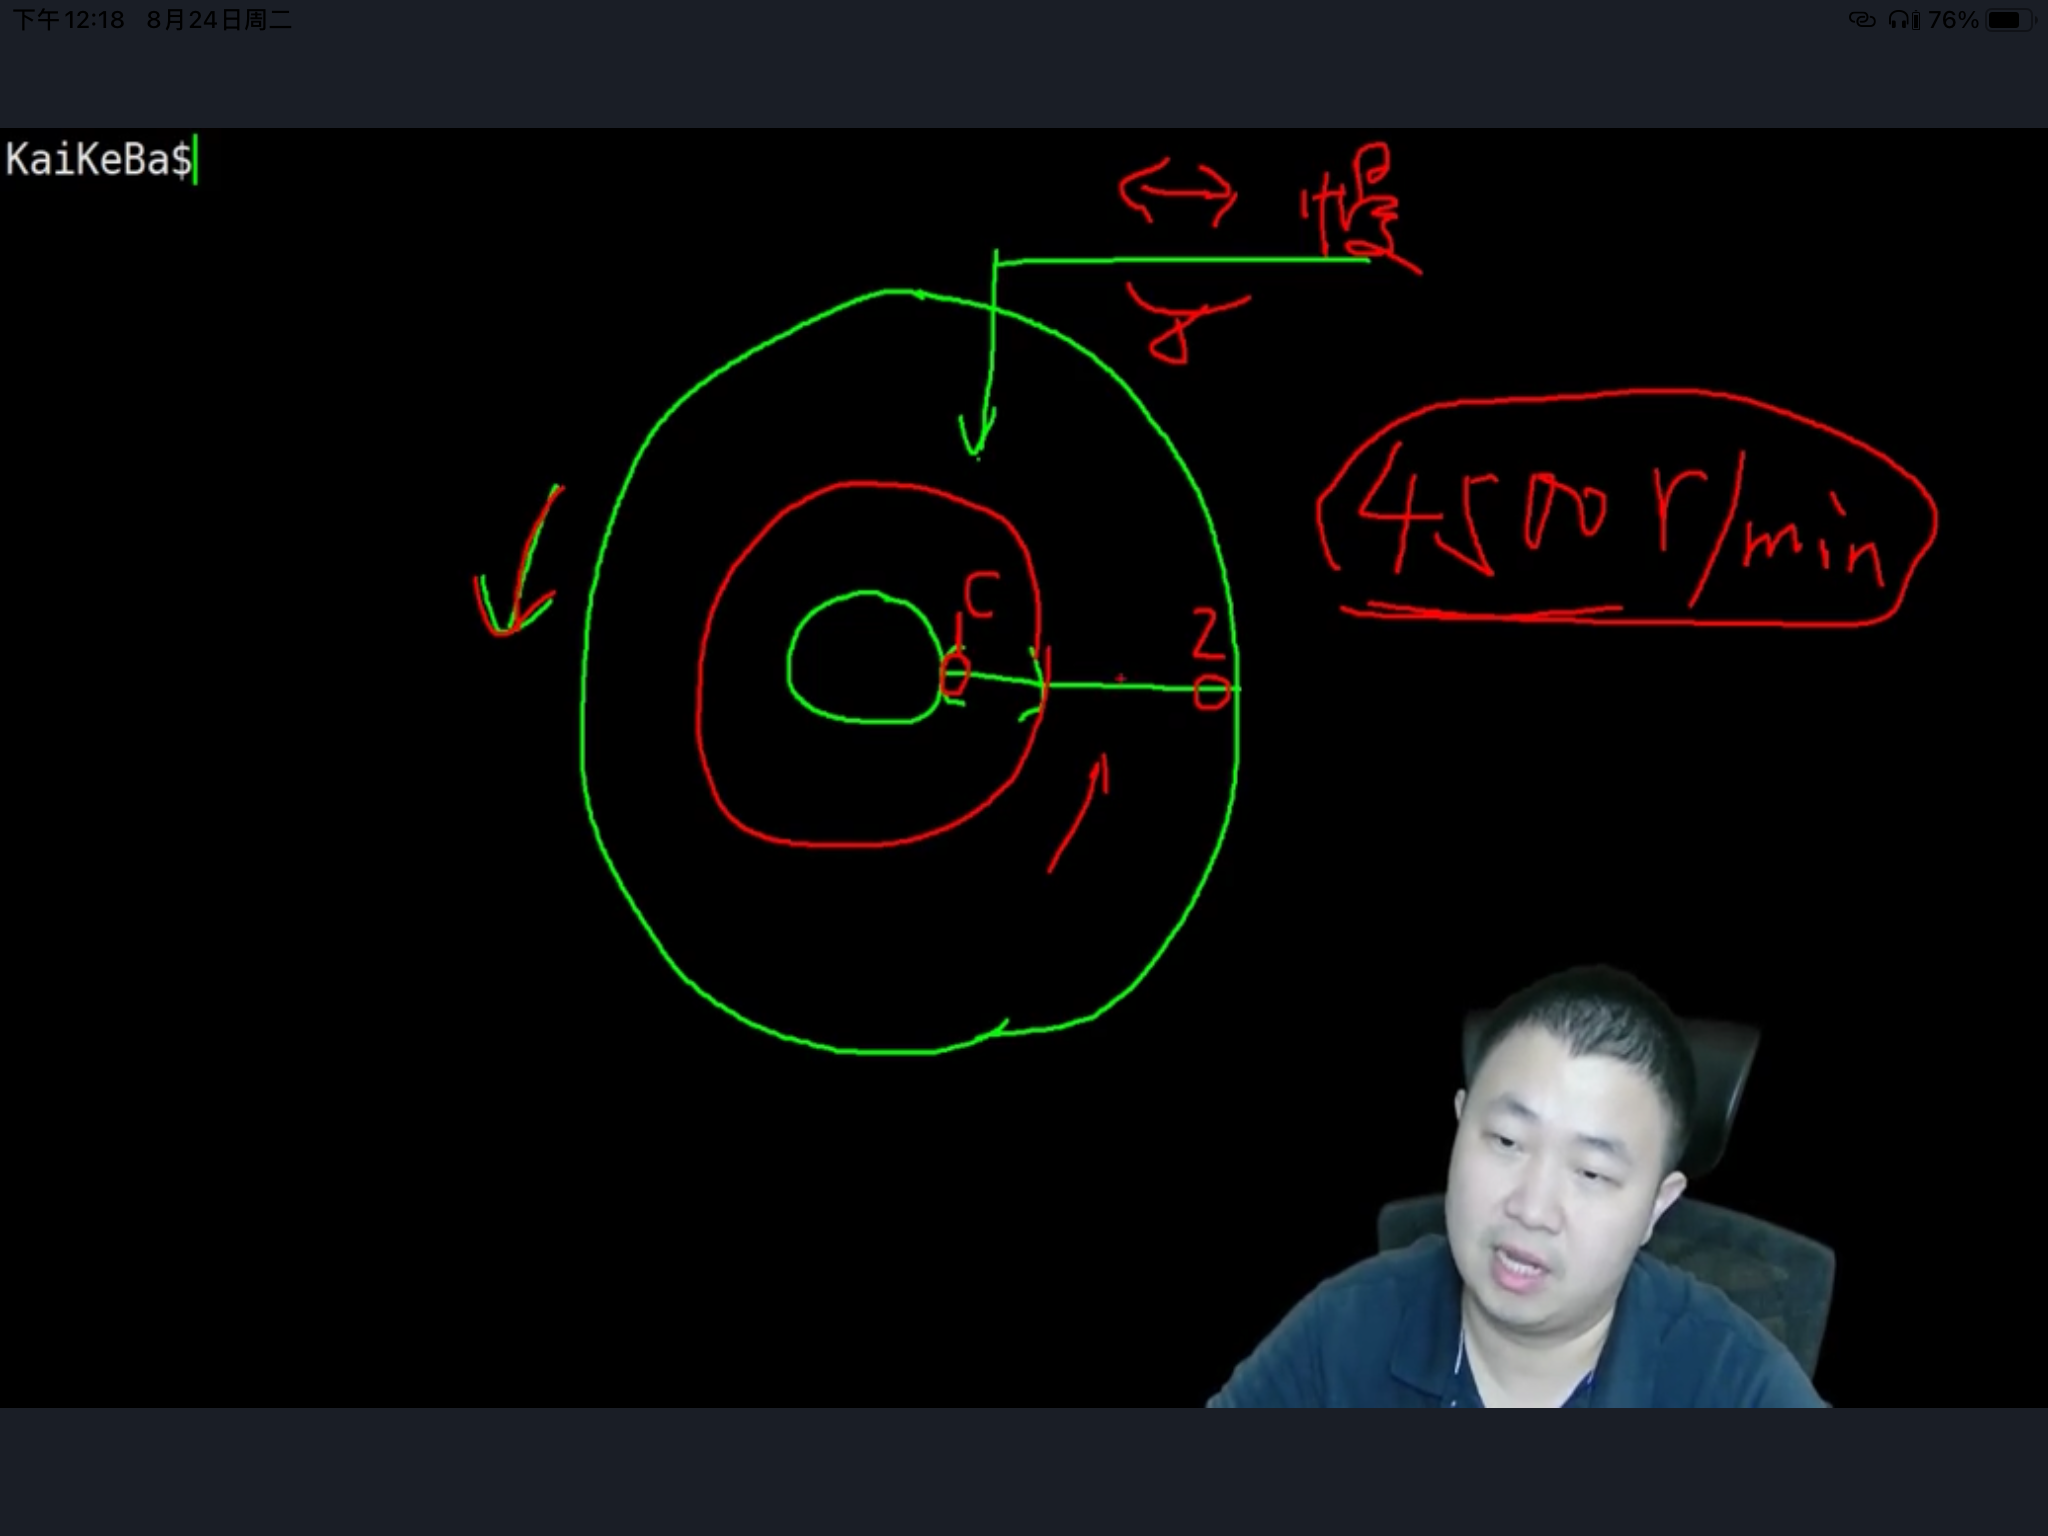 下午12:18 8月24日周二
76%
KaiKeBa$
慢
4500r/min
C
Z